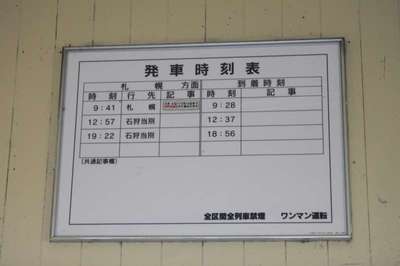 発車時刻表
札幌方面 到着時刻
時刻 行先 記事 時刻 記事
9:41 札幌 9:28
12:57 石狩当別 12:37
19:22 石狩当別 18:56
(共通記事欄)
全区間全列車禁煙 ワンマン運転